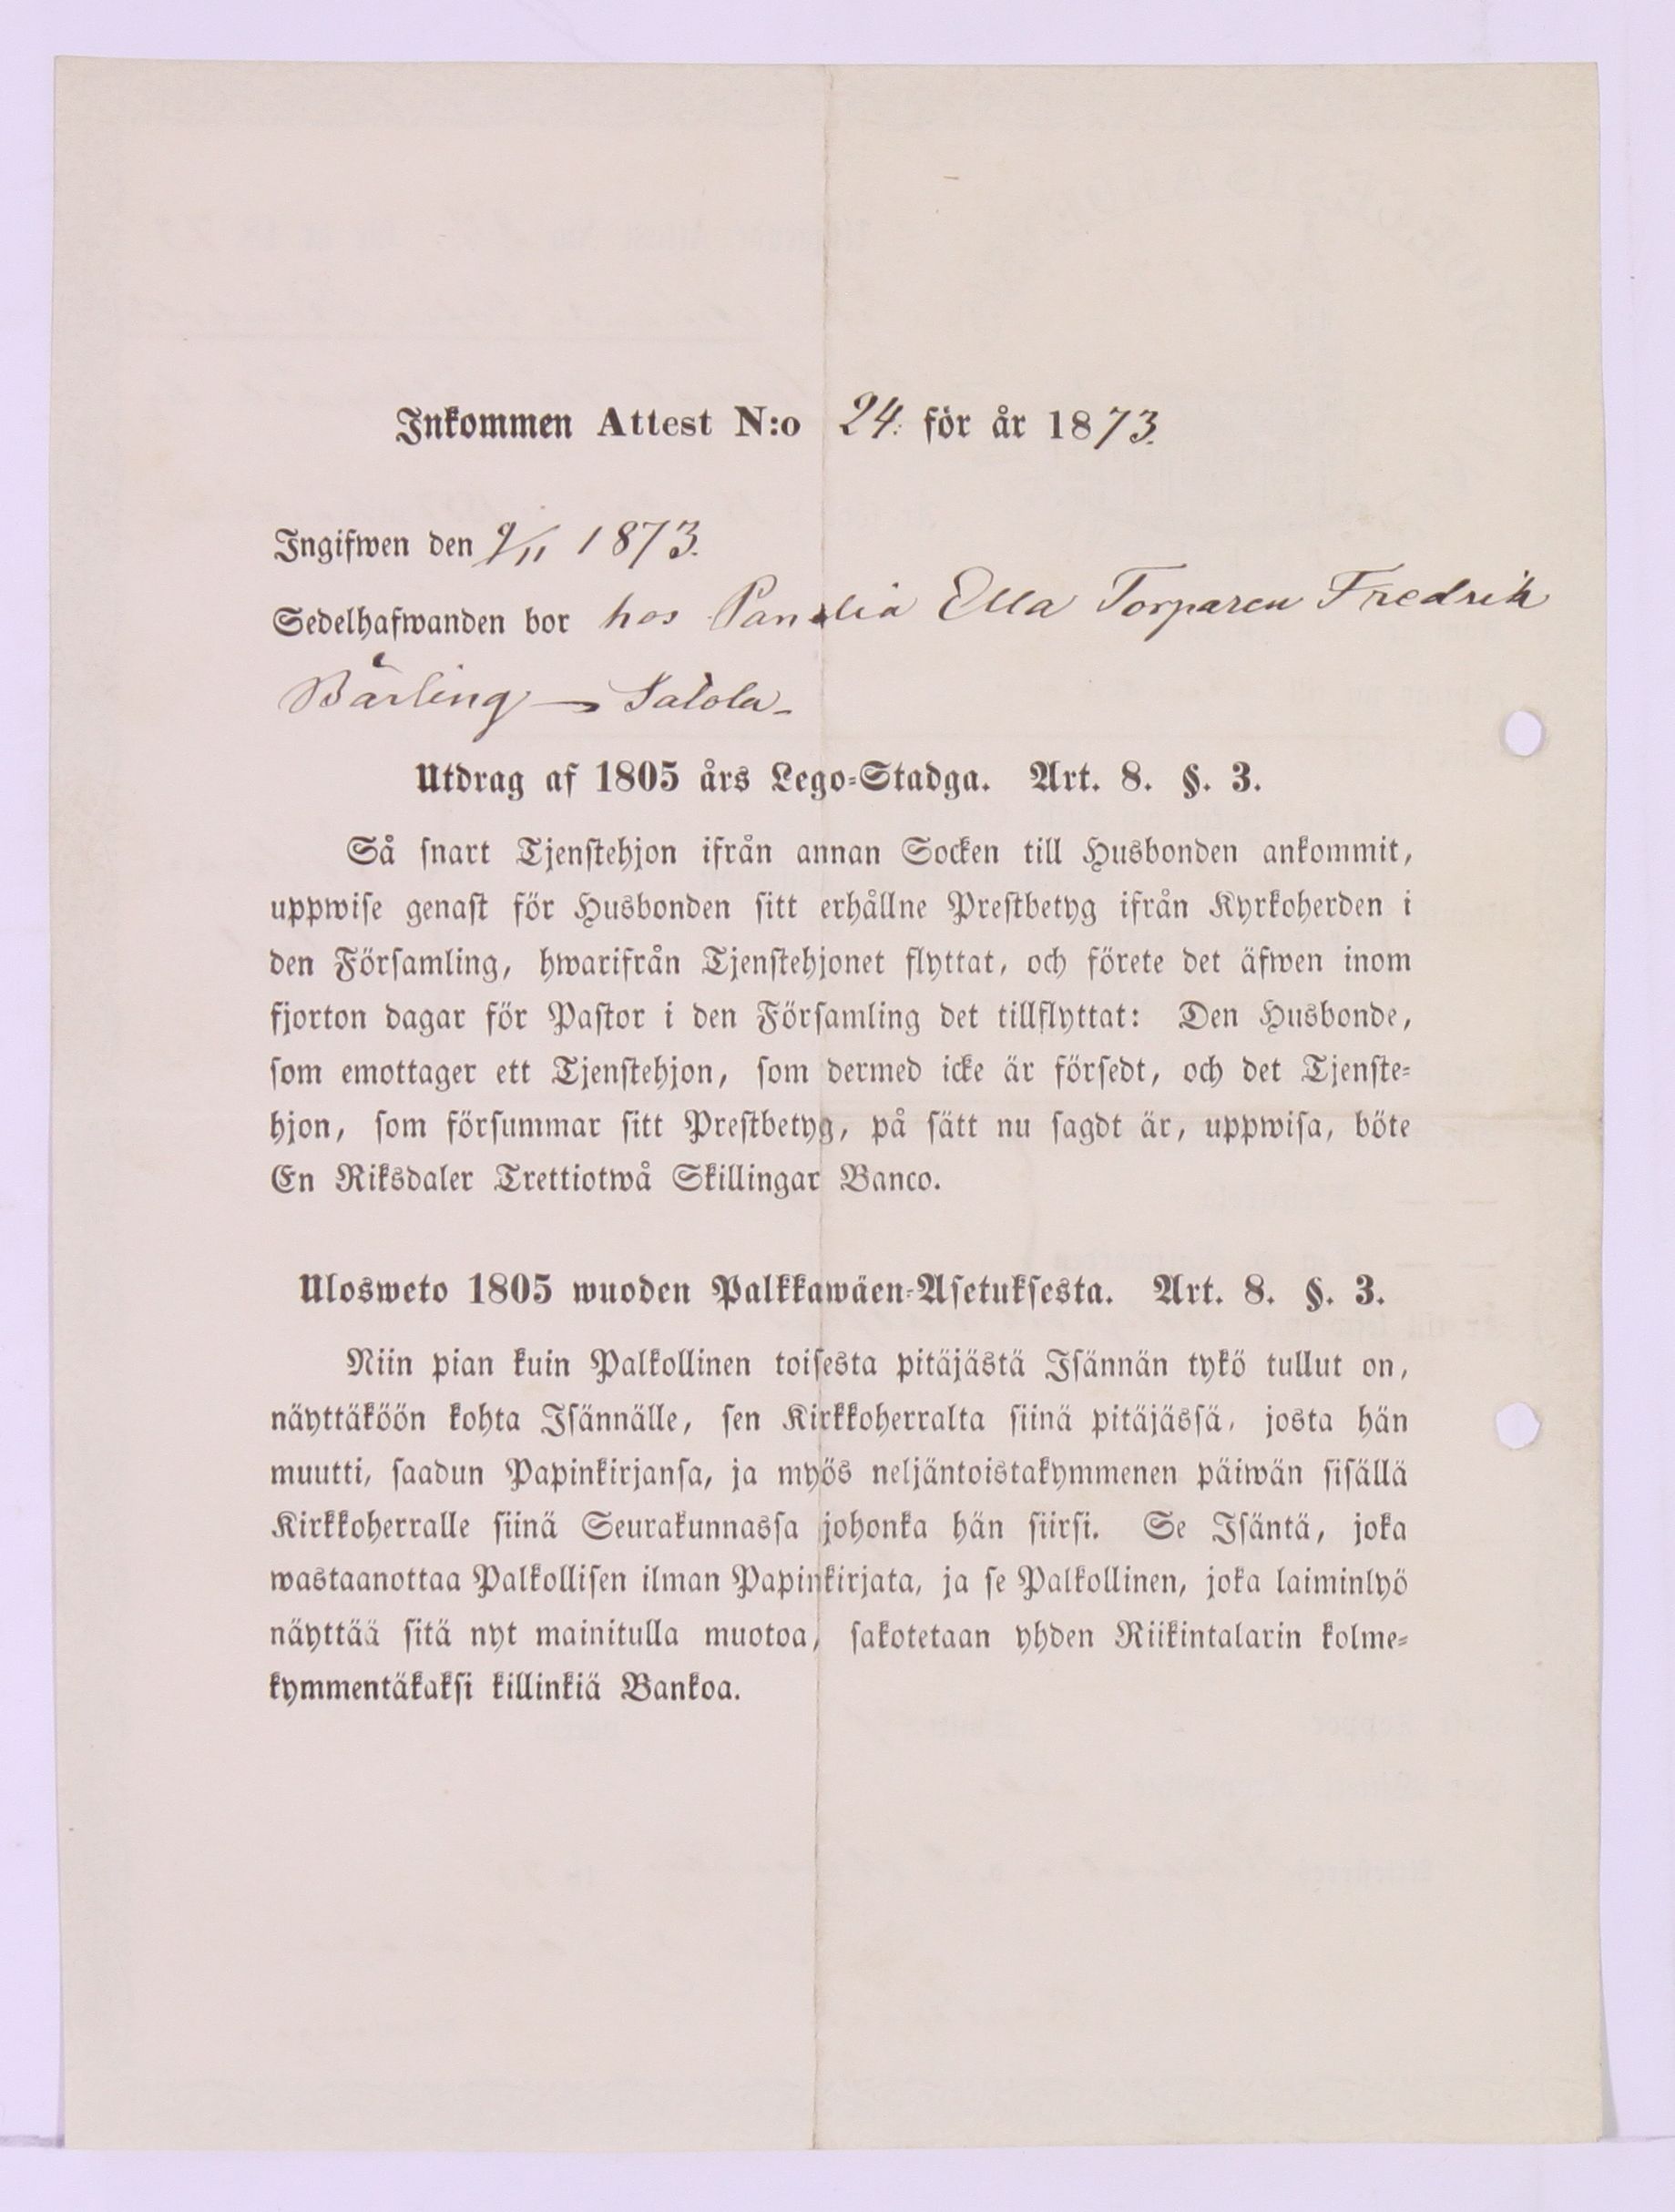 Inkommen Attest N:o 24. för år 1873.
Ingifwen den 9/11 1873.
Sedelhafwanden bor hos Ella Torparen Fredrik
Bärling — Salola
Utdrag af 1805 års Lego-Stadga. Art. 8. §. 3.
Så snart Tjenstehjon ifrån annan Socken till Husbonden ankommit,
uppwise genast för Husbonden sitt erhållne Prestbetyg ifrån Kyrkoherden i
den Församling, hwarifrån Tjenstehjonet flyttat, och förete det äfwen inom
fjorton dagar för Pastor i den Församling det tillflyttat: Den Husbonde,
som emottager ett Tjenstehjon, som dermed icke är försedt, och det Tjenste-
hjon, som försummar sitt Prestbetyg, på sätt nu sagdt är, uppwisa, böte
En Riksdaler Trettiotwå Skillingar Banco.
Ulosweto 1805 wuoden Palkkawäen-Asetuksesta. Art. 8. §. 3.
Niin pian kuin Palkollinen toisesta pitäjästä Isännän tykö tullut on,
näyttäköön kohta Isännälle, sen Kirkkoherralta siinä pitäjässä, josta hän
muutti, saadun Papinkirjansa, ja myös neljäntoistakymmenen päiwän sisällä
Kirkkoherralle siinä Seurakunnassa johonka hän siirsi. Se Isäntä, joka
wastaanottaa Palkollisen ilman Papinkirjata, ja se Palkollinen, joka laiminlyö
näyttää sitä nyt mainitulla muotoa, sakotetaan yhden Riikintalarin kolme-
kymmentäkaksi killinkiä Bankoa.